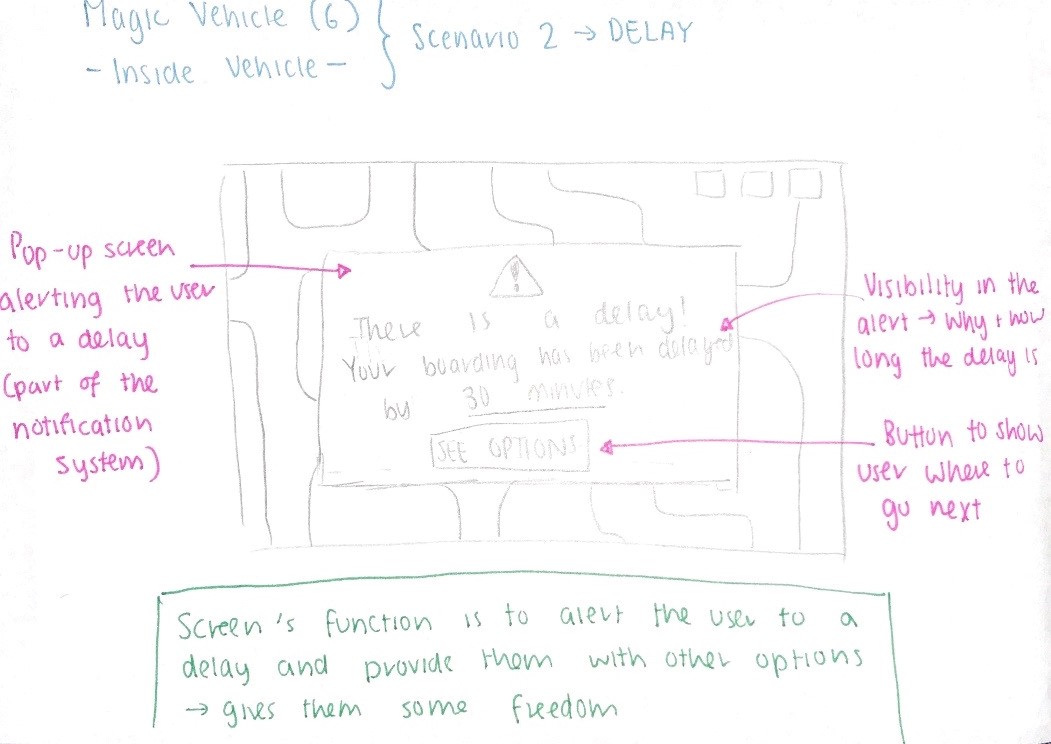 Magic Vehicle (6)
- Inside Vehicle -
Scenario 2 → DELAY
Pop-up screen
alerting the user
to a delay
(part of the
notification
system)
There is a delay!
Your boarding has been delayed
by 30 minutes.
SEE OPTIONS
Visibility in the
alert → Why + how
long the delay is
Button to show
user where to
go next
Screen's function is to alert the user to a
delay and provide them with other options
→ gives them some freedom